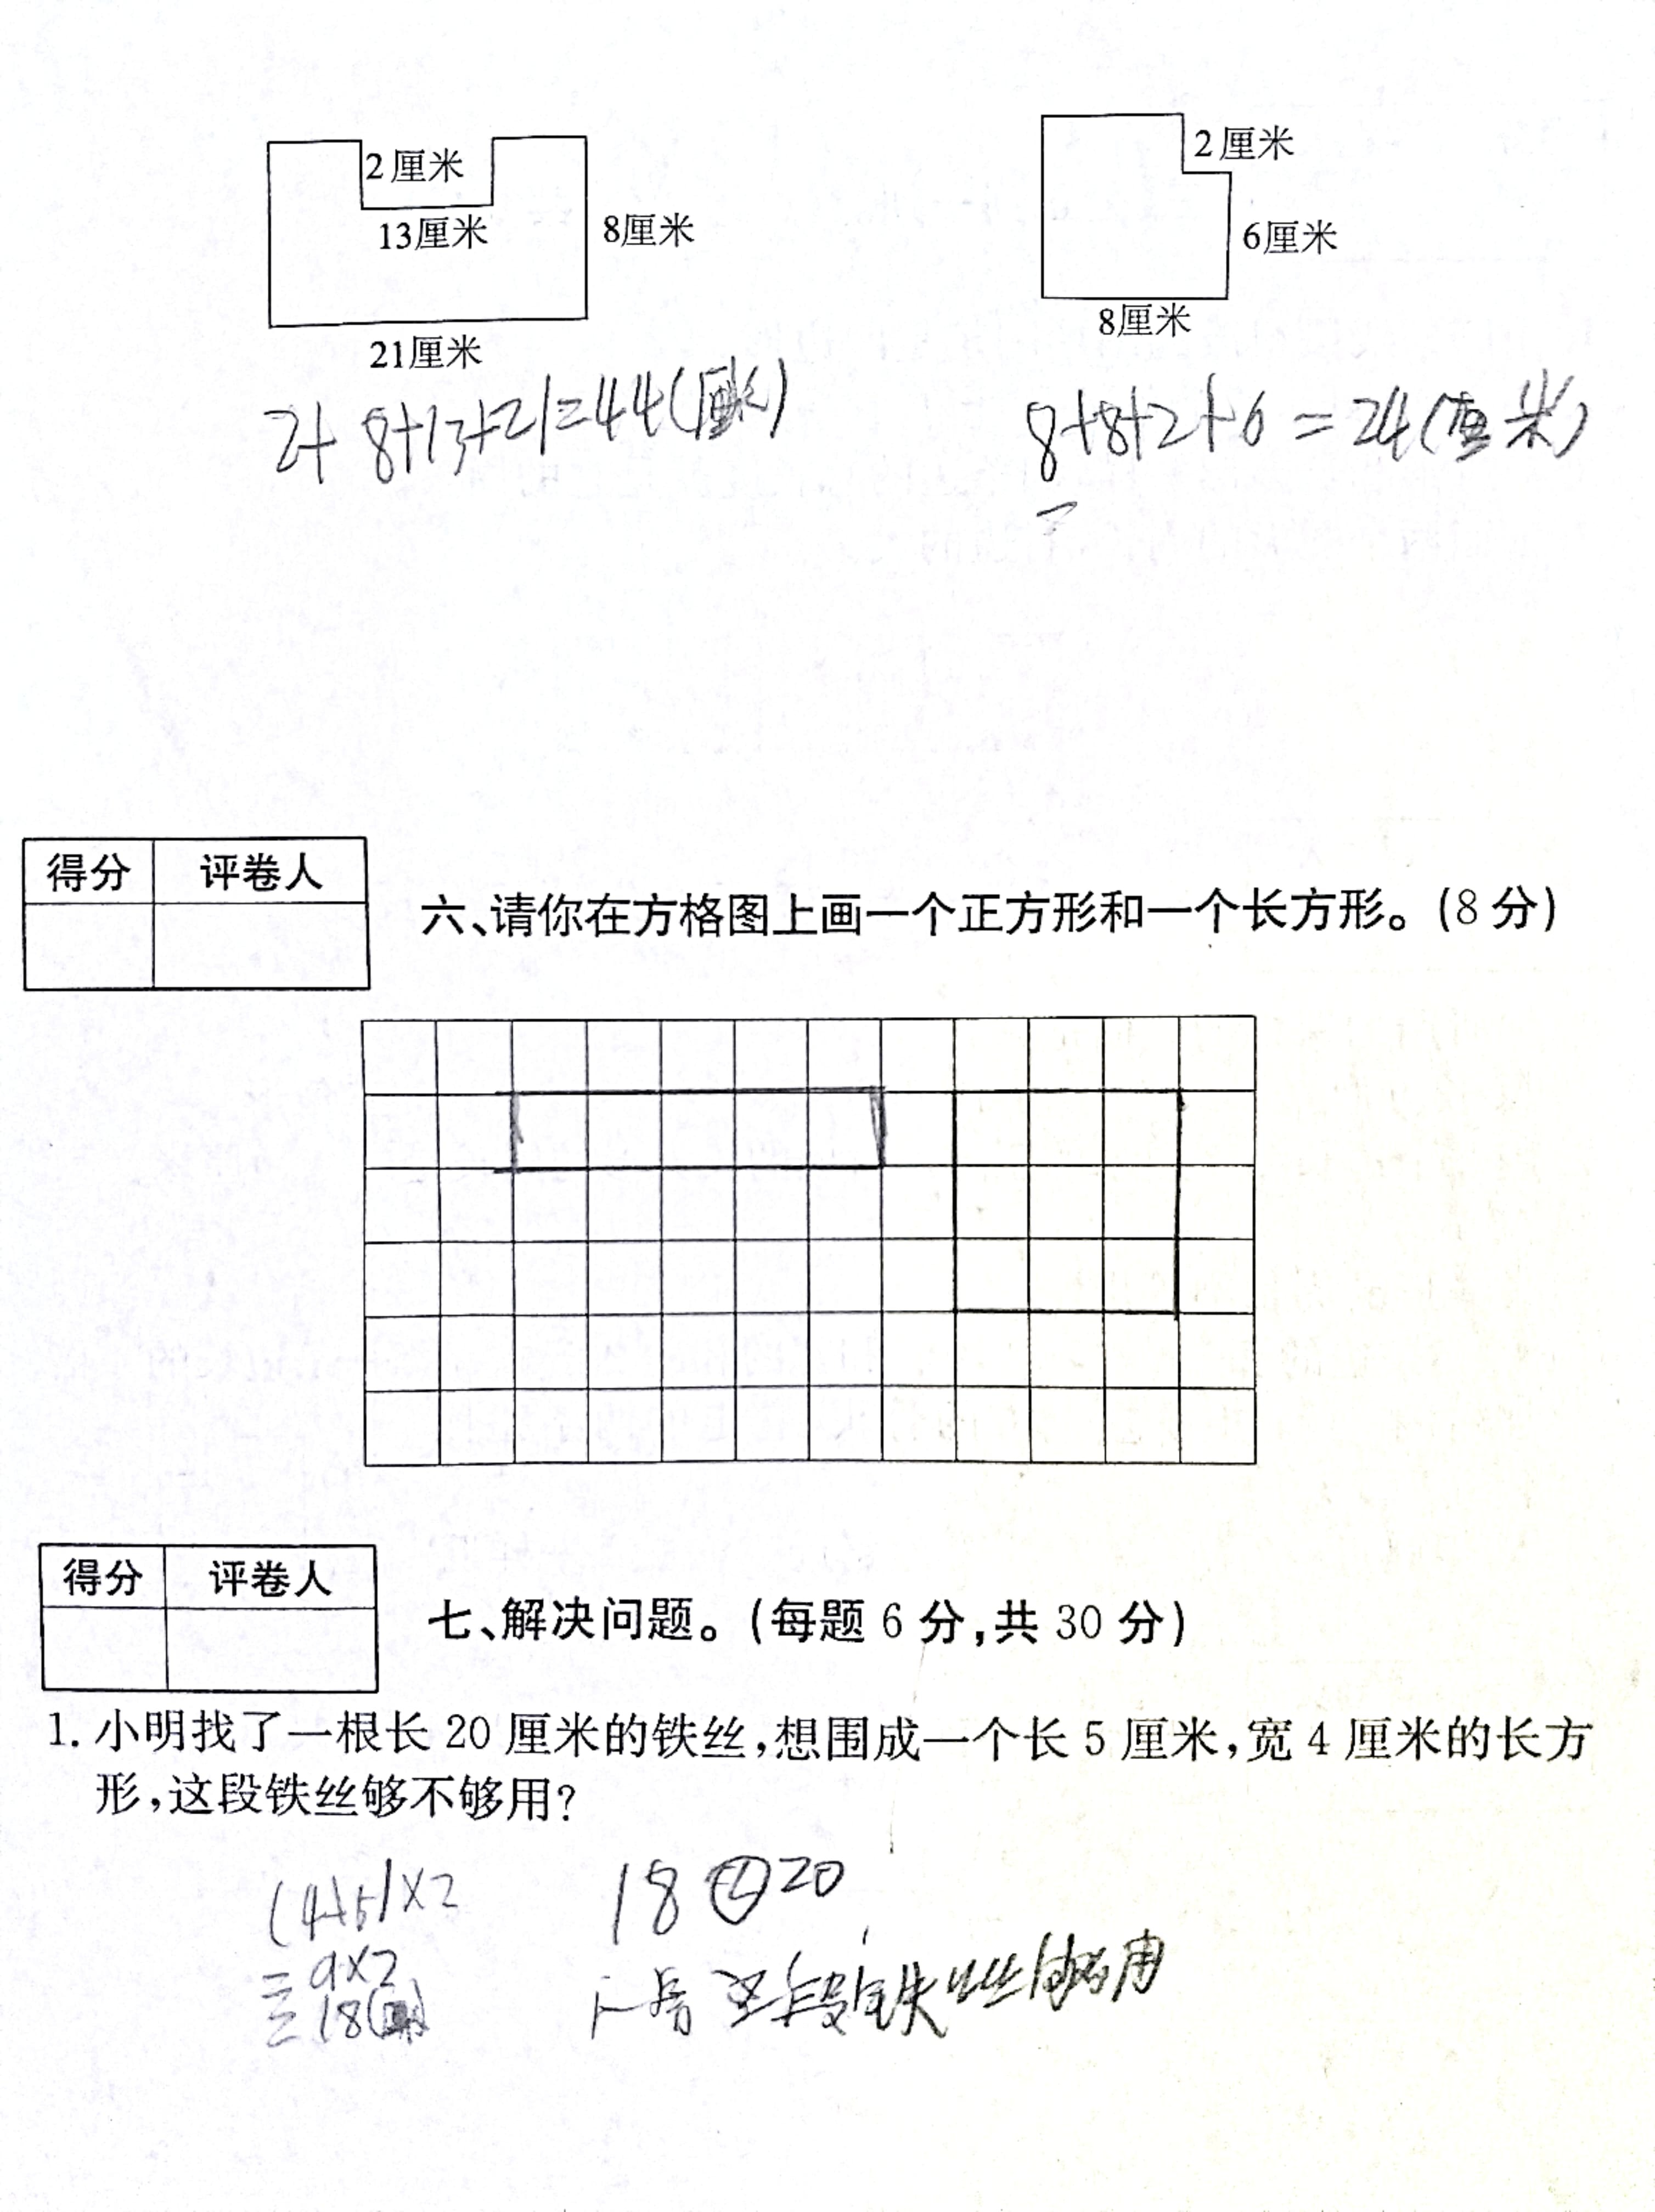 2厘米
13厘米
8厘米
21厘米
2+8+13+21=44(厘米)
2厘米
6厘米
8厘米
8+8+2+6=24(厘米)
得分 评卷人
六、请你在方格图上画一个正方形和一个长方形。(8分)
得分 评卷人
七、解决问题。(每题6分,共30分)
1. 小明找了一根长20厘米的铁丝,想围成一个长5厘米,宽4厘米的长方
形,这段铁丝够不够用?
(4+5)×2
=9×2
=18(厘米)
18<20
答 这段铁丝够用